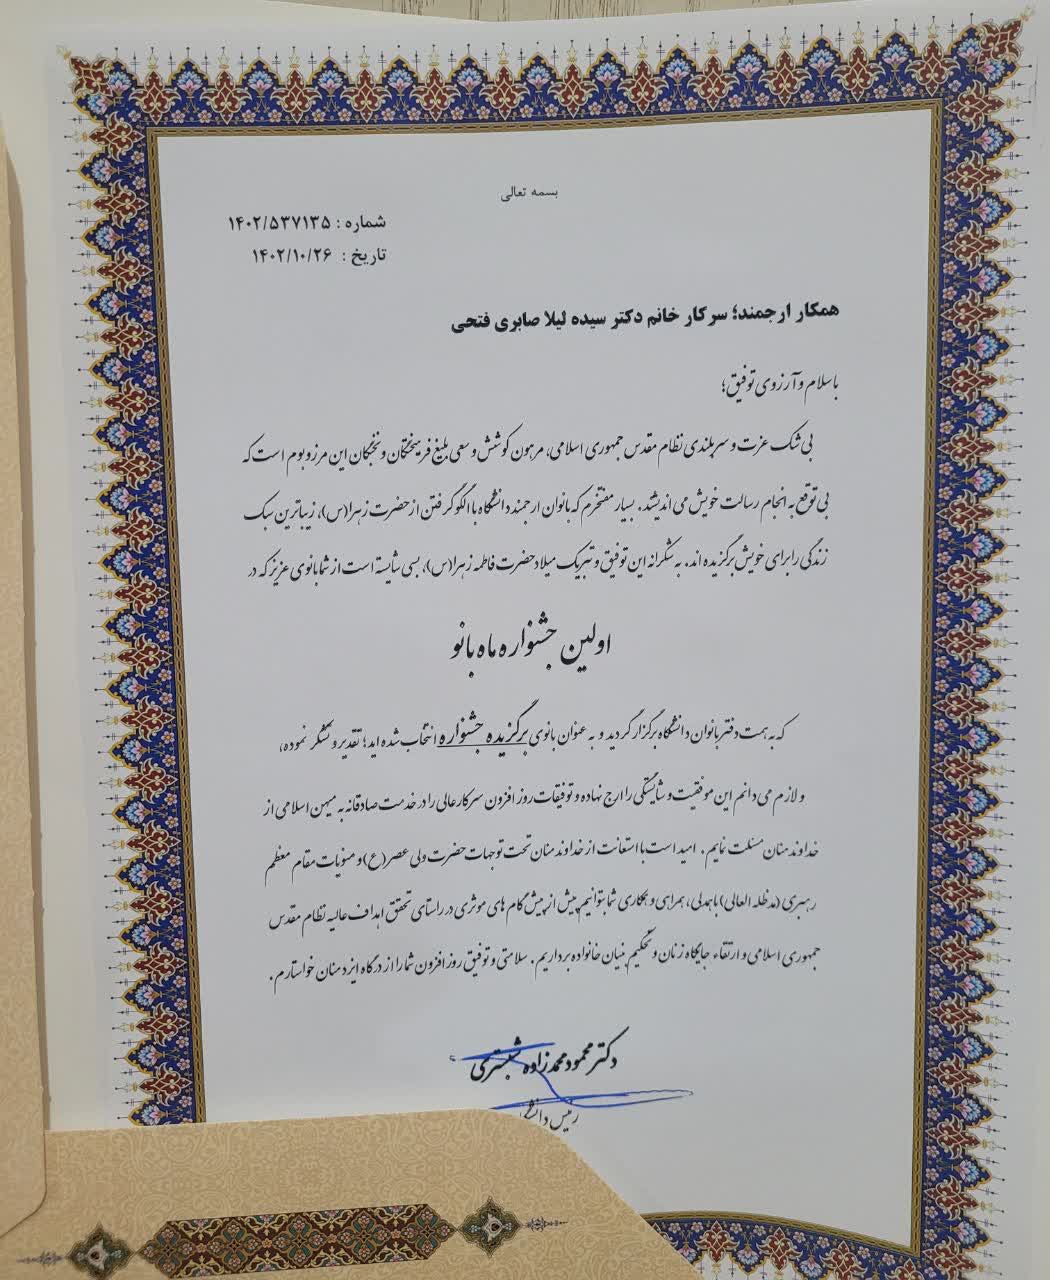 بسمه تعالی
شماره : ۱۴۰۲/۵۳۷۱۳۵
تاریخ : ۱۴۰۲/۱۰/۲۶
همکار ارجمند؛ سرکار خانم دکتر سیده لیلا صابری فتحی
با سلام و آرزوی توفیق؛
بی شک عزت و سربلندی نظام مقدس جمهوری اسلامی، مرهون کوشش و سعی بلیغ فرهیختگان و نخبگان این مرز و بوم است که
بی توقع به انجام رسالت خویش می اندیشند. بسیار مفتخرم که بانوان ارجمند دانشگاه با الگو گرفتن از حضرت زهرا(س)، زیباترین سبک
زندگی را برای خویش برگزیده اند. به شکرانه این توفیق و تبریک میلاد حضرت فاطمه زهرا(س)، بسی شایسته است از شما بانوی عزیز که در
اولین جشنواره ماه بانو
که به همت دفتر بانوان دانشگاه برگزار گردید و به عنوان بانوی برگزیده جشنواره انتخاب شده اید؛ تقدیر و تشکر نموده،
و لازم می دانم این موفقیت و شایستگی را ارج نهاده و توفیقات روز افزون سرکارعالی را در خدمت صادقانه به میهن اسلامی از
خداوند منان مسئلت نمایم. امید است با استعانت از خداوند منان تحت توجهات حضرت ولی عصر(ع) و منویات مقام معظم
رهبری (مدظله العالی) با همدلی، همراهی و همکاری شما بتوانیم بیش از پیش گام های موثری در راستای تحقق اهداف عالیه نظام مقدس
جمهوری اسلامی و ارتقاء جایگاه زنان و تحکیم بنیان خانواده برداریم. سلامتی و توفیق روز افزون شما را از درگاه ایزد منان خواستارم.
دکتر محمود محمدزاده شبستری
رئیس